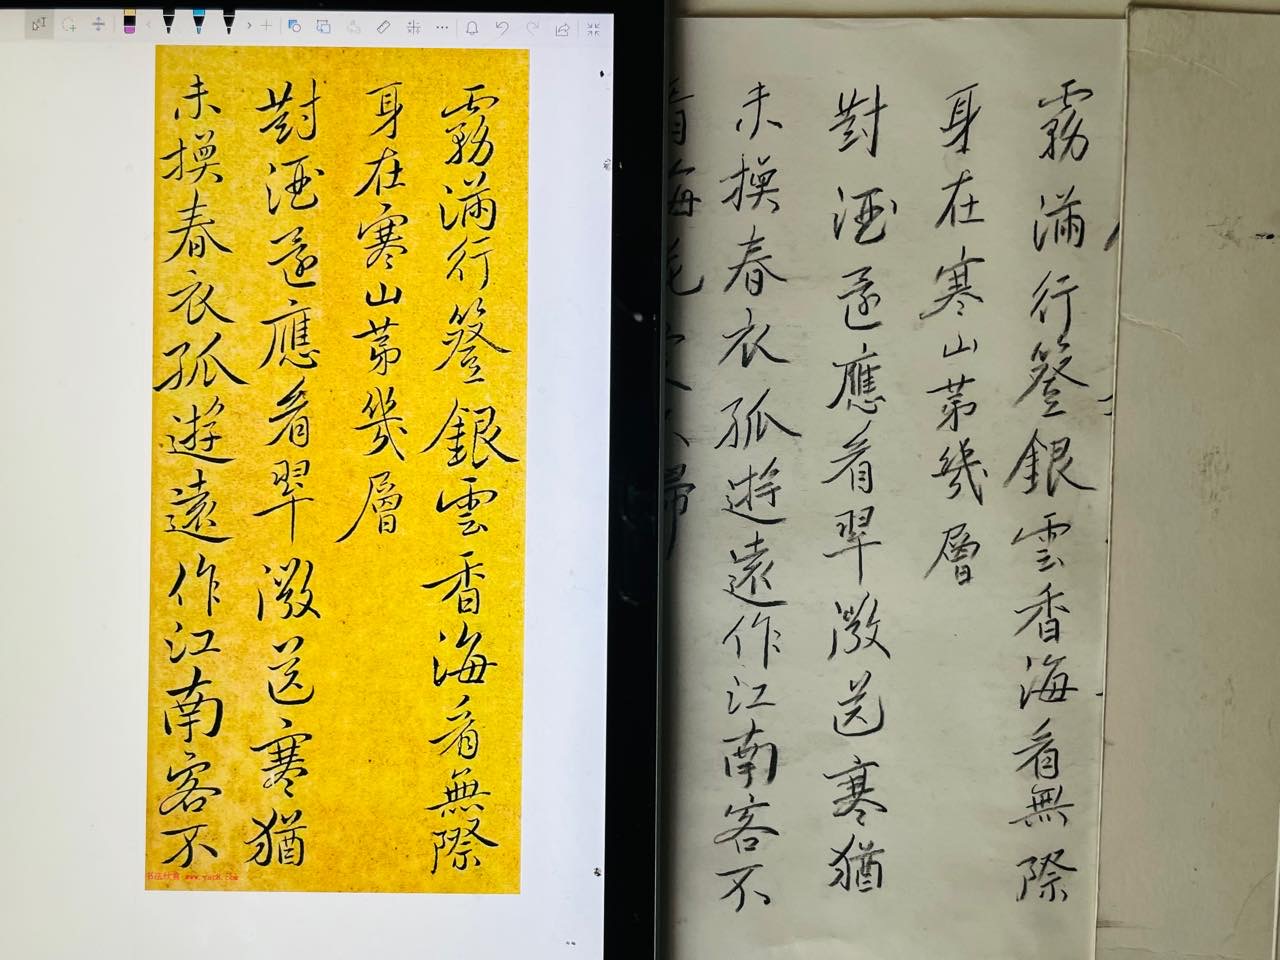 霧滿行簦銀雲香海看無際
身在寒山苐幾層
對酒還應看翠激送寒猶
未換春衣孤遊遠作江南客不
书法欣赏 www.yac8.com
霧滿行簦銀雲香海看無際
身在寒山苐幾層
對酒還應看翠激送寒猶
未換春衣孤遊遠作江南客不